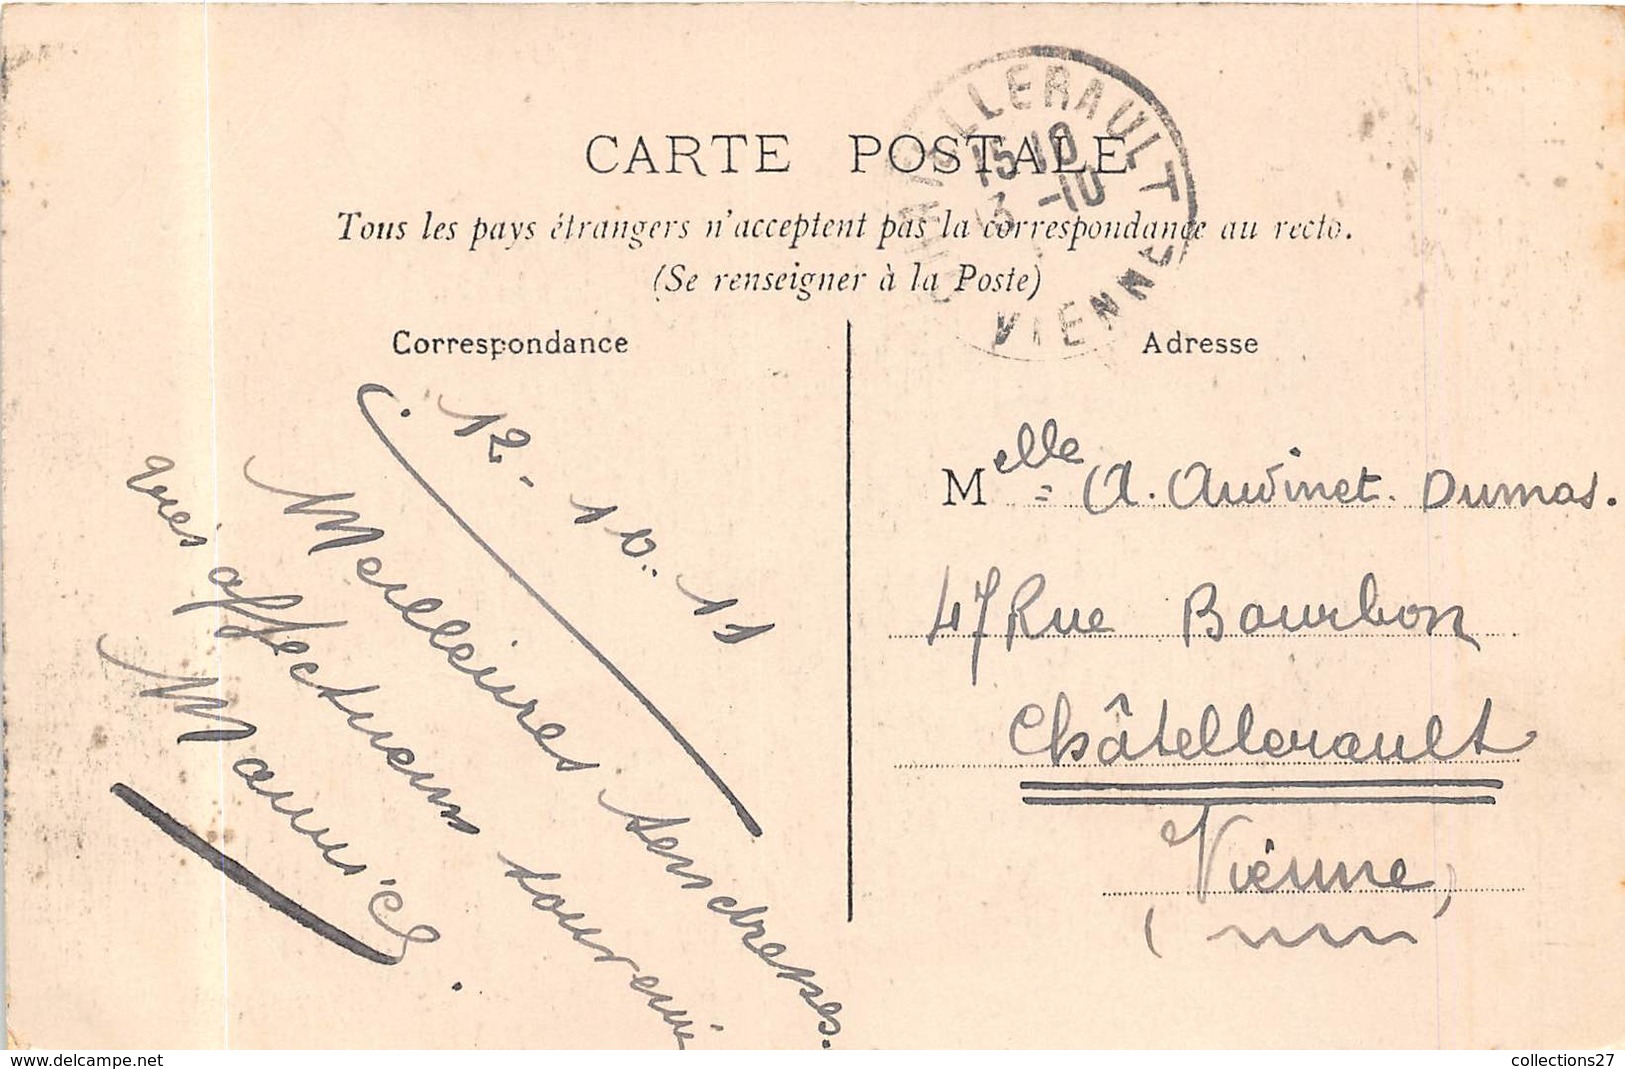 CARTE POSTALE
Tous les pays étrangers n'acceptent pas la correspondance au recto.
(Se renseigner à la Poste)
CHATELLERAULT
15 10
13 -10
VIENNE
Correspondance
12. 10. 11
Meilleures tendresses.
très affectueux souvenir
Maurice.
Adresse
Melle A. Audinet. Dumas.
47 Rue Bourbon
Châtellerault
Vienne
collections27.delcampe.net
collections27